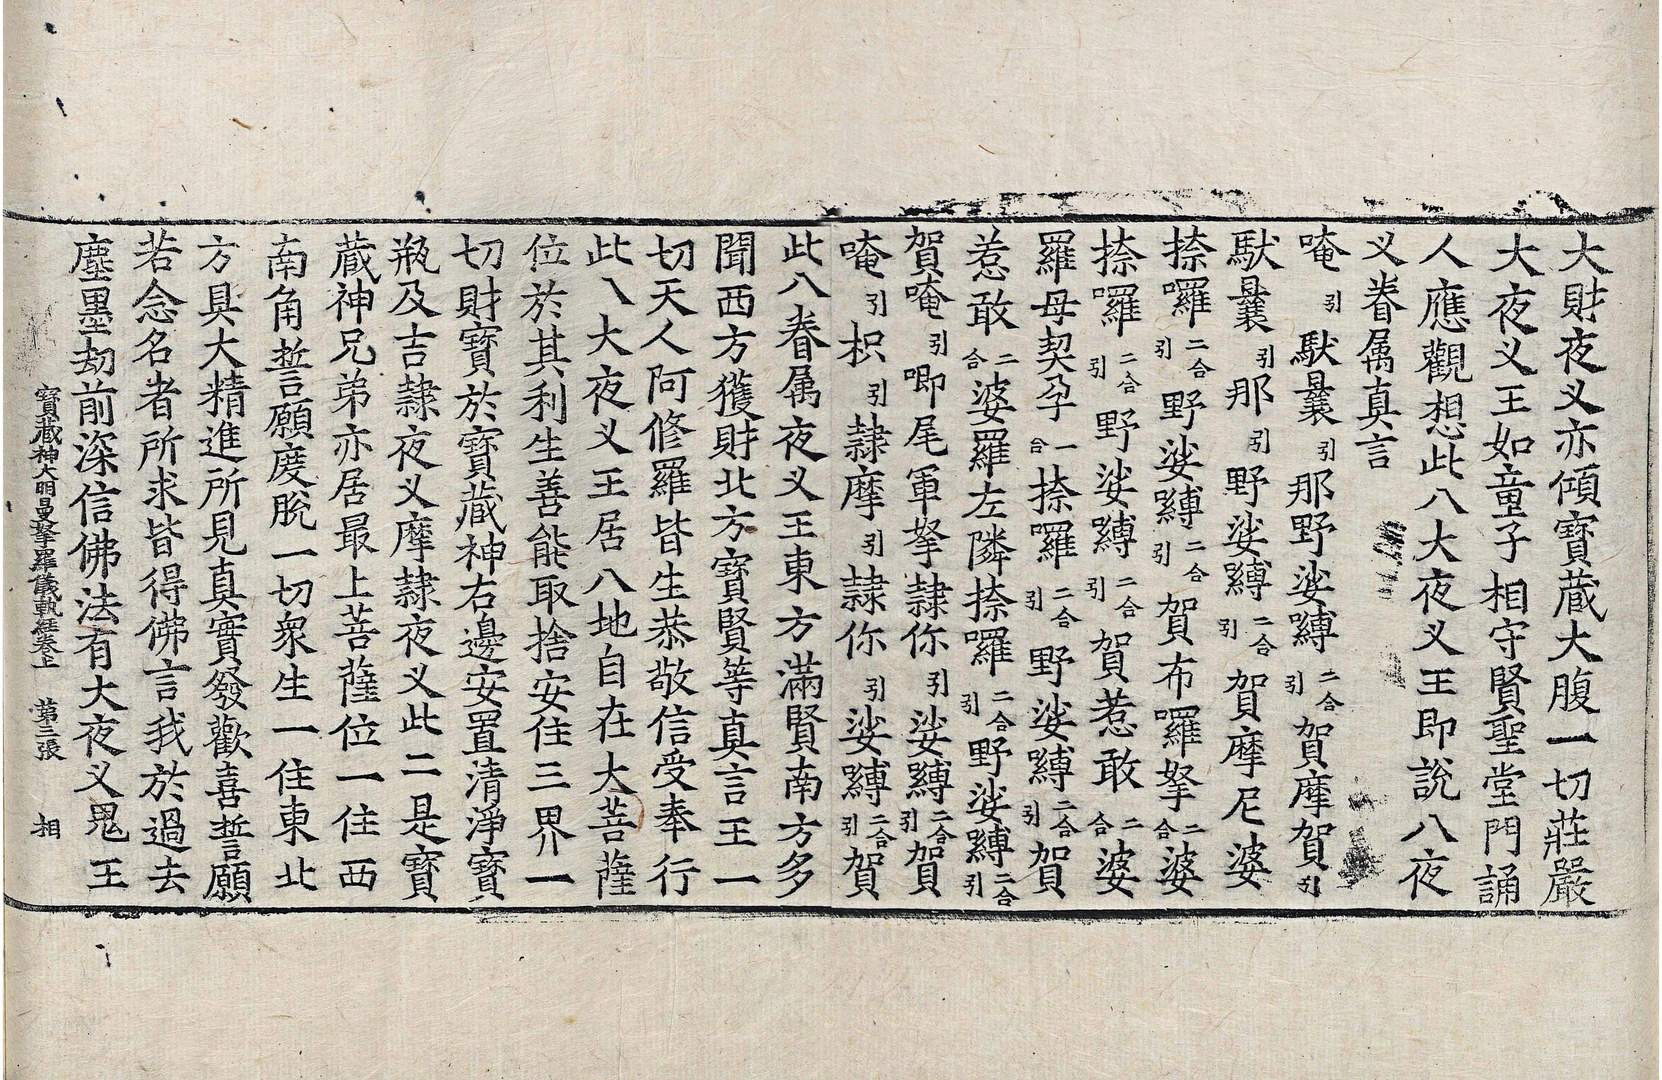 大財夜义亦傾寶藏大腹一切莊嚴
大夜义王如童子相守賢聖堂門誦
人應觀想此八大夜义王即說八夜
义眷属真言
唵引馱曩引那野娑嚩二合引賀摩賀引
馱曩引那引野娑嚩二合引賀摩尼婆
捺囉二合引野娑嚩二合引賀布囉拏二合婆
捺囉二合引野娑嚩二合引賀惹敢二合婆
羅母契孕一合捺囉二合引野娑嚩二合引賀
惹敢二合婆羅左隣捺囉二合引野娑嚩二合引
賀唵引唧尾軍拏隸你引娑嚩二合引賀
唵引枳引隸摩引隸你引娑嚩二合引賀
此八眷属夜义王東方滿賢南方多
聞西方獲財北方寶賢等真言王一
切天人阿修羅皆生恭敬信受奉行
此八大夜义王居八地自在大菩薩
位於其利生善能取捨安住三界一
切財寶於寶藏神右邊安置清淨寶
瓶及吉隸夜义摩隸夜义此二是寶
藏神兄弟亦居最上菩薩位一住西
南角誓願度脫一切衆生一住東北
方具大精進所見真實發歡喜誓願
若念名者所求皆得佛言我於過去
塵墨劫前深信佛法有大夜义鬼王
寶藏神大明曼拏羅儀軌經卷上 第三張 相